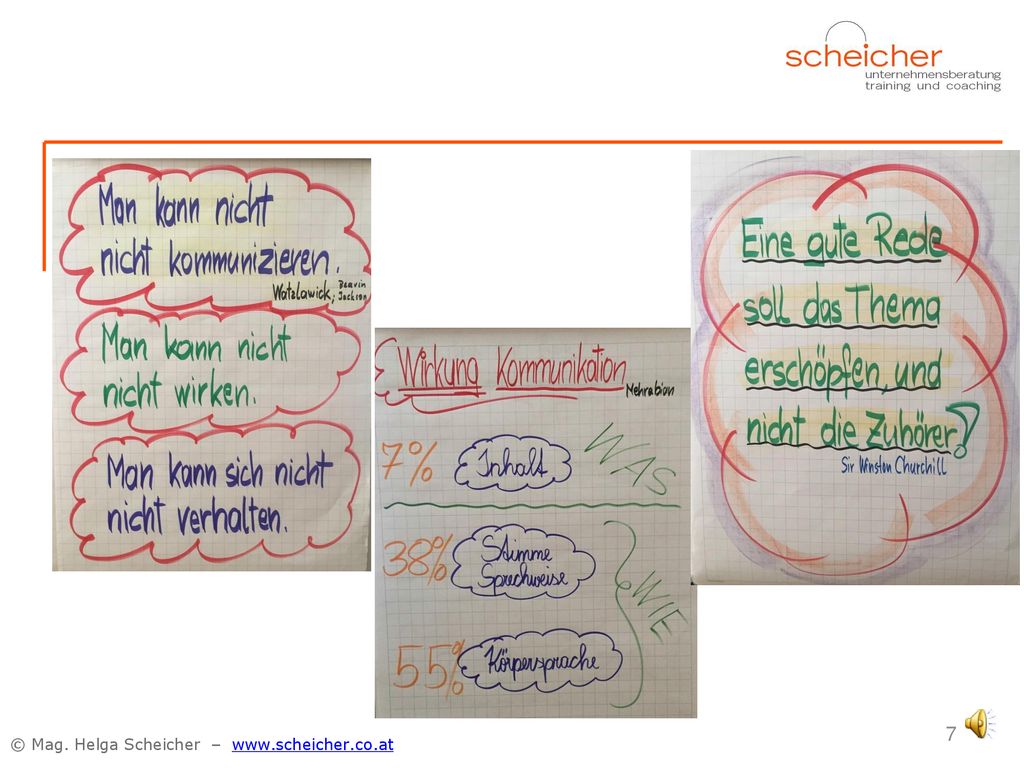 scheicher
unternehmensberatung
training und coaching
Man kann nicht
nicht kommunizieren.
Watzlawick, Beavin
Jackson
Man kann nicht
nicht wirken.
Man kann sich nicht
nicht verhalten.
Wirkung Kommunikation
Mehrabian
7% Inhalt WAS
38% Stimme
Sprechweise
WIE
55% Körpersprache
Eine gute Rede
soll das Thema
erschöpfen, und
nicht die Zuhörer!
Sir Winston Churchill
© Mag. Helga Scheicher – www.scheicher.co.at
7